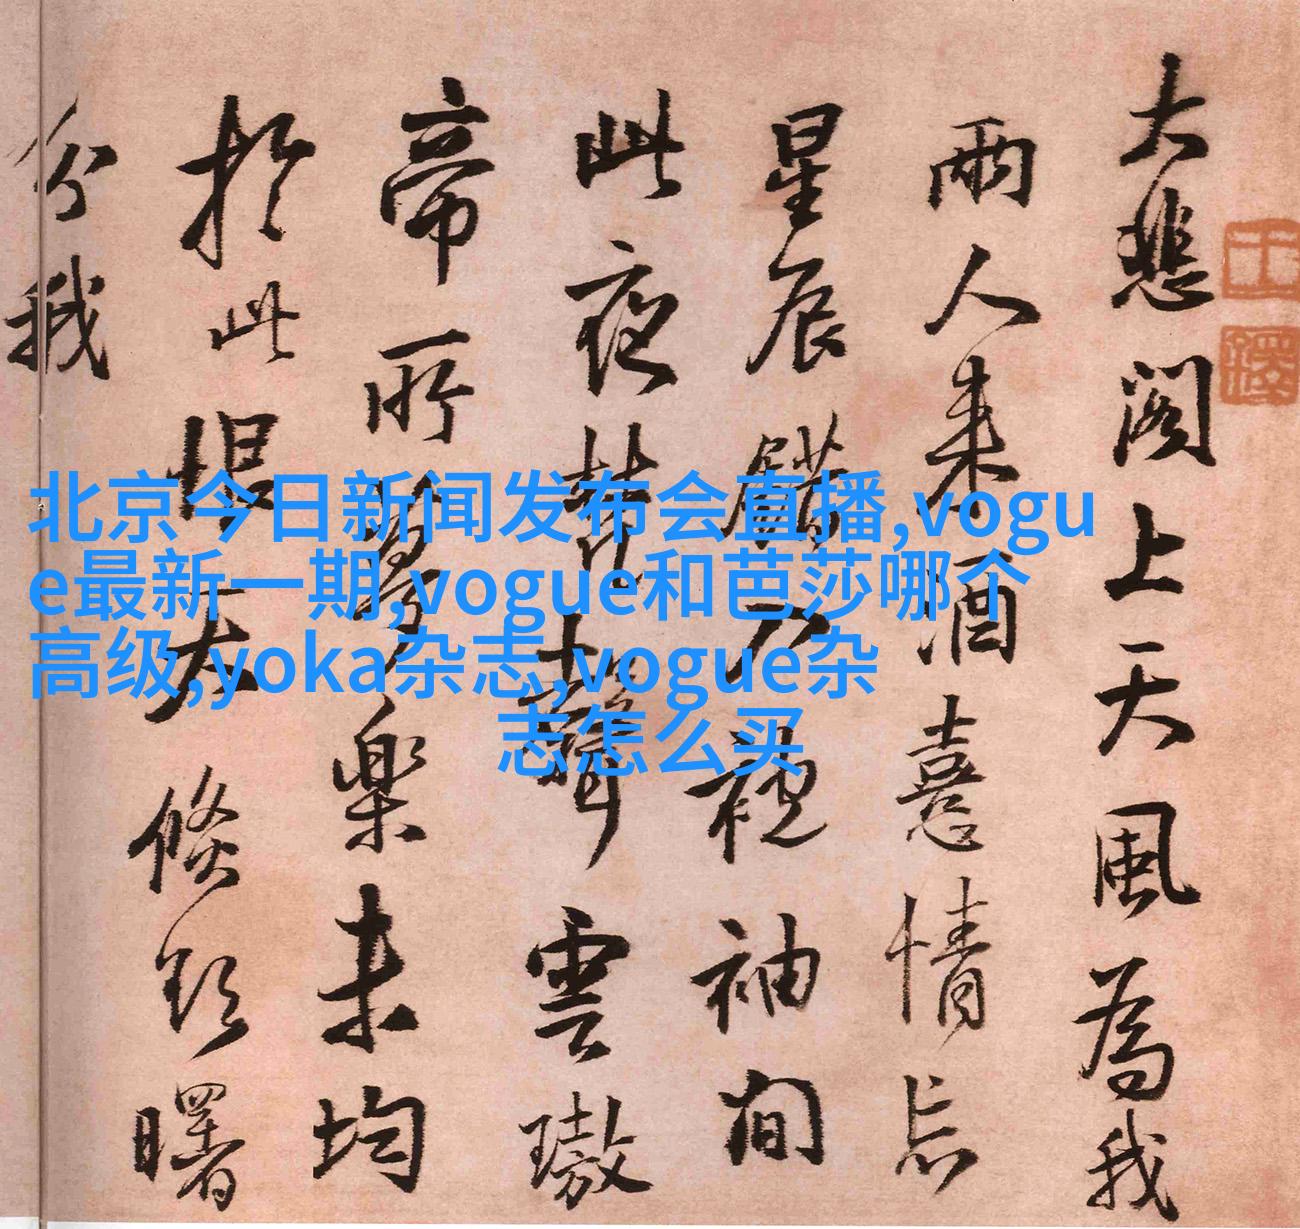 大悲阁上天風為我
兩人来酒憙情忘
星辰錯落襟袖間
此夜梵聲雲璈
帝所夢樂未均
於此恨太倏
曙
分我
北京今日新闻发布会直播,vogu
e最新一期,vogue和芭莎哪个
高级,yoka杂志,vogue杂
志怎么买